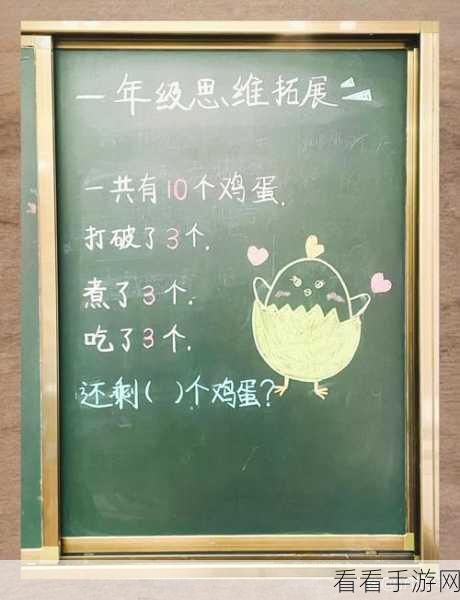 一年级思维拓展
一共有10个鸡蛋.
打破了3个.
煮了3个.
吃了3个.
还剩( )个鸡蛋?
看看手游网